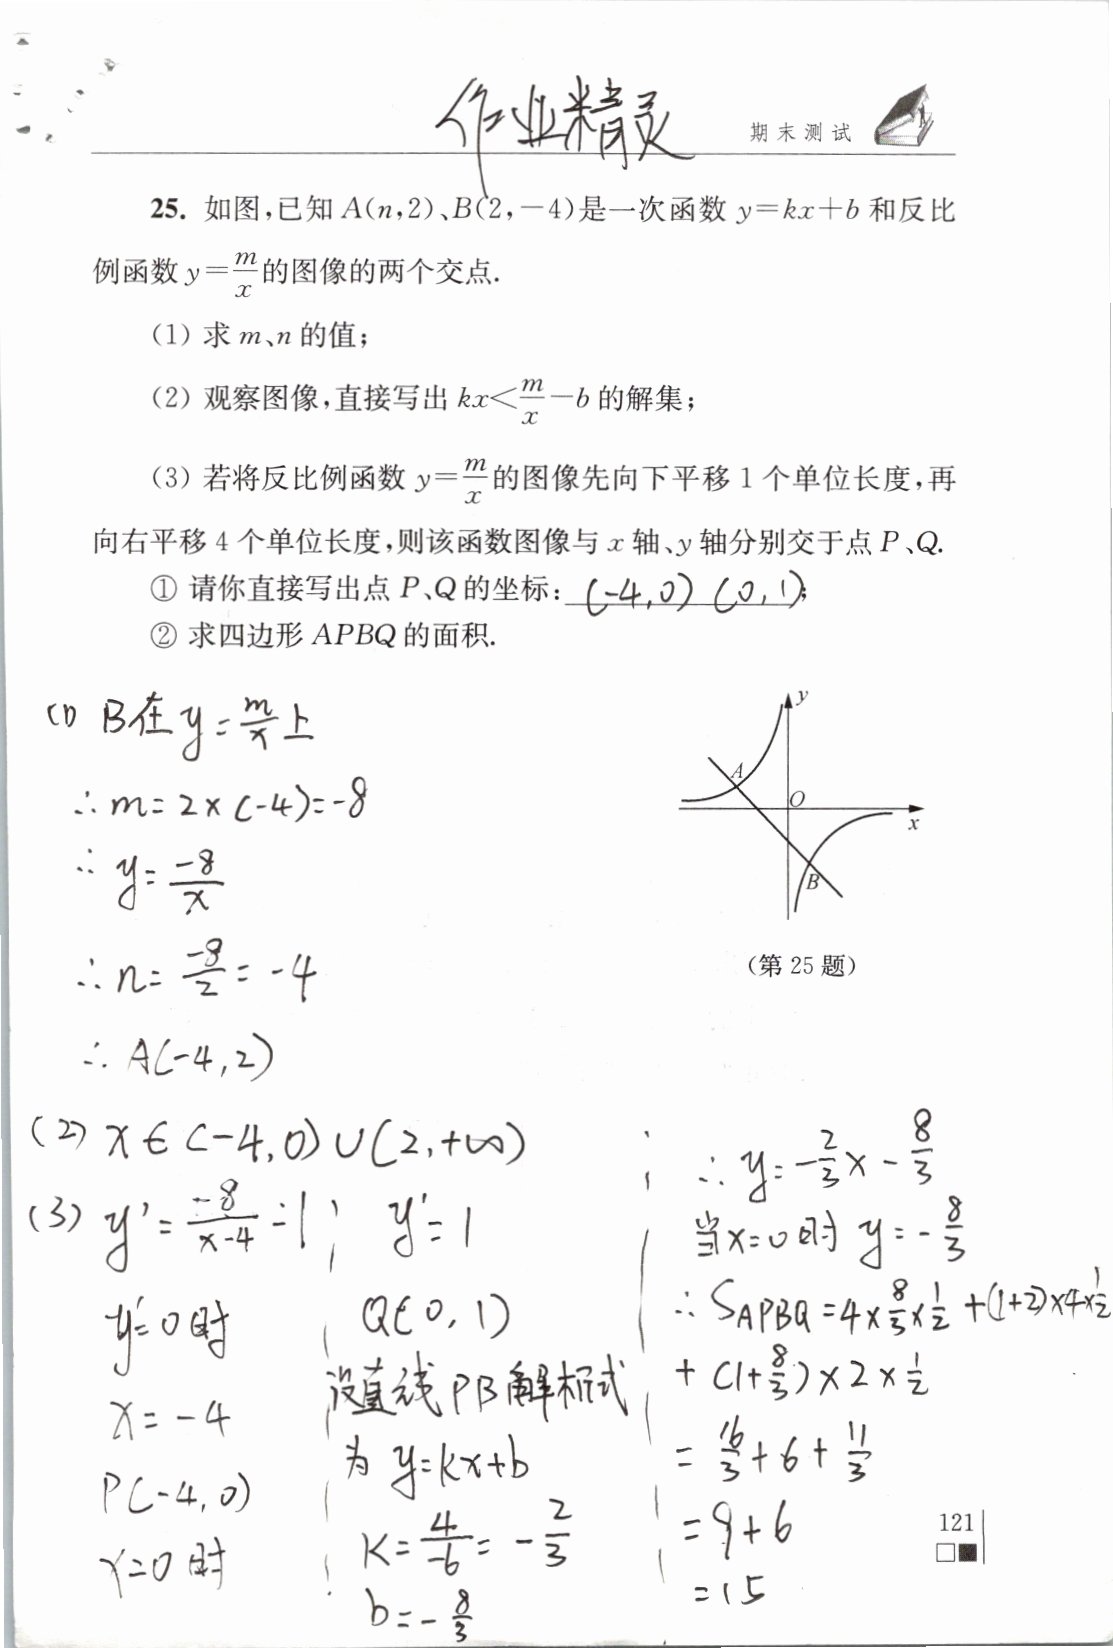 作业精灵
期末测试
25. 如图,已知 A(n,2)、B(2,-4)是一次函数 y=kx+b 和反比
例函数 y=m/x 的图像的两个交点.
(1) 求 m、n 的值;
(2) 观察图像,直接写出 kx<m/x-b 的解集;
(3) 若将反比例函数 y=m/x 的图像先向下平移 1 个单位长度,再
向右平移 4 个单位长度,则该函数图像与 x 轴、y 轴分别交于点 P、Q.
① 请你直接写出点 P、Q 的坐标: (-4,0) (0,1);
② 求四边形 APBQ 的面积.
y
A
O
x
B
(第 25 题)
(1) B在 y=m/x 上
∴ m=2×(-4)=-8
∴ y=-8/x
∴ n=-8/2=-4
∴ A(-4,2)
(2) x∈(-4,0)∪(2,+∞)
(3) y'=-8/(x-4)-1
y'=0时
x=-4
P(-4,0)
x=0时
y'=1
Q(0,1)
设直线PB解析式
为 y=kx+b
K=4/-6=-2/3
b=-8/3
∴ y=-2/3x-8/3
当x=0时 y=-8/3
∴ SAPBQ=4×8/3×1/2+(1+2)×4×1/2
+(1+8/3)×2×1/2
=16/3+6+11/3
=9+6
=15
121